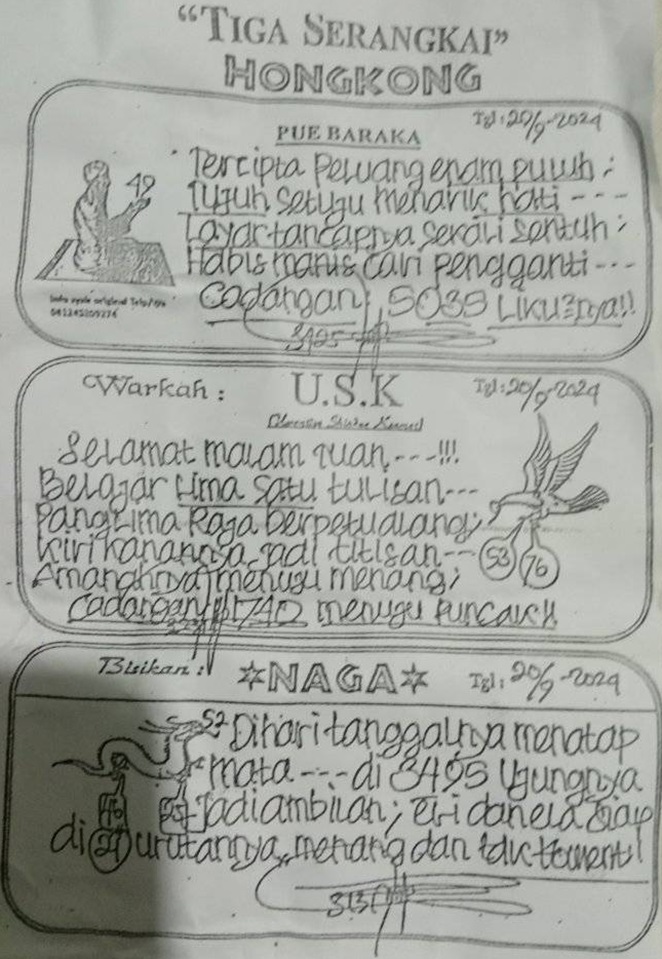 "TIGA SERANGKAI"
HONGKONG
Tgl: 20/9-2024
PUE BARAKA
49
Tercipta Peluang enam puluh;
Tujuh setuju menarik hati ---
Layar tancapnya sekali sentuh;
Habis manis cari pengganti ---
Cadangan, 5035 Liku2nya!!
Warkah: U.S.K Tgl: 20/9-2024
Selamat malam tuan, ---!!!
Belajar Lima Satu tulisan ---
Panglima Raja berpetualang;
Kiri kanannya jadi titisan ---
53 76
Amanahnya menuju menang;
Cadangan 1740 menuju Puncak!!
Bisikan: NAGA Tgl: 20/9-2024
52
Dihari tanggalnya menatap
mata --- di 8495 Ujungnya
Jadi ambilan;
di 21 urutannya, menang dan